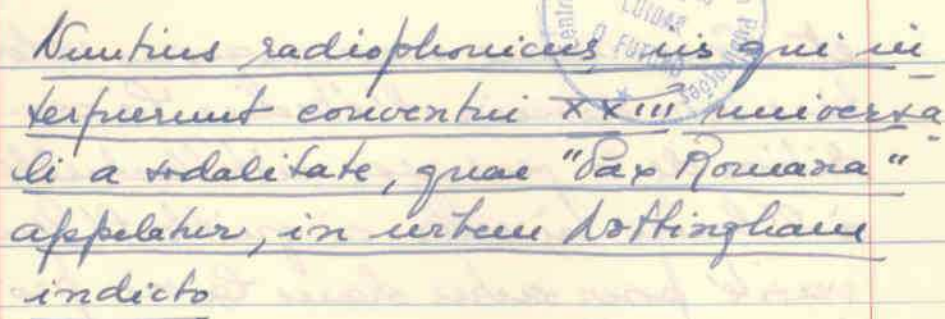 Nuntius radiophonicus, iis qui in
terfuerunt conventui XXIII universa
li a sodalitate, quae "Pax Romana"
appelatur, in urbem Nottingham
indicto
CUIDAR
O FUTURO